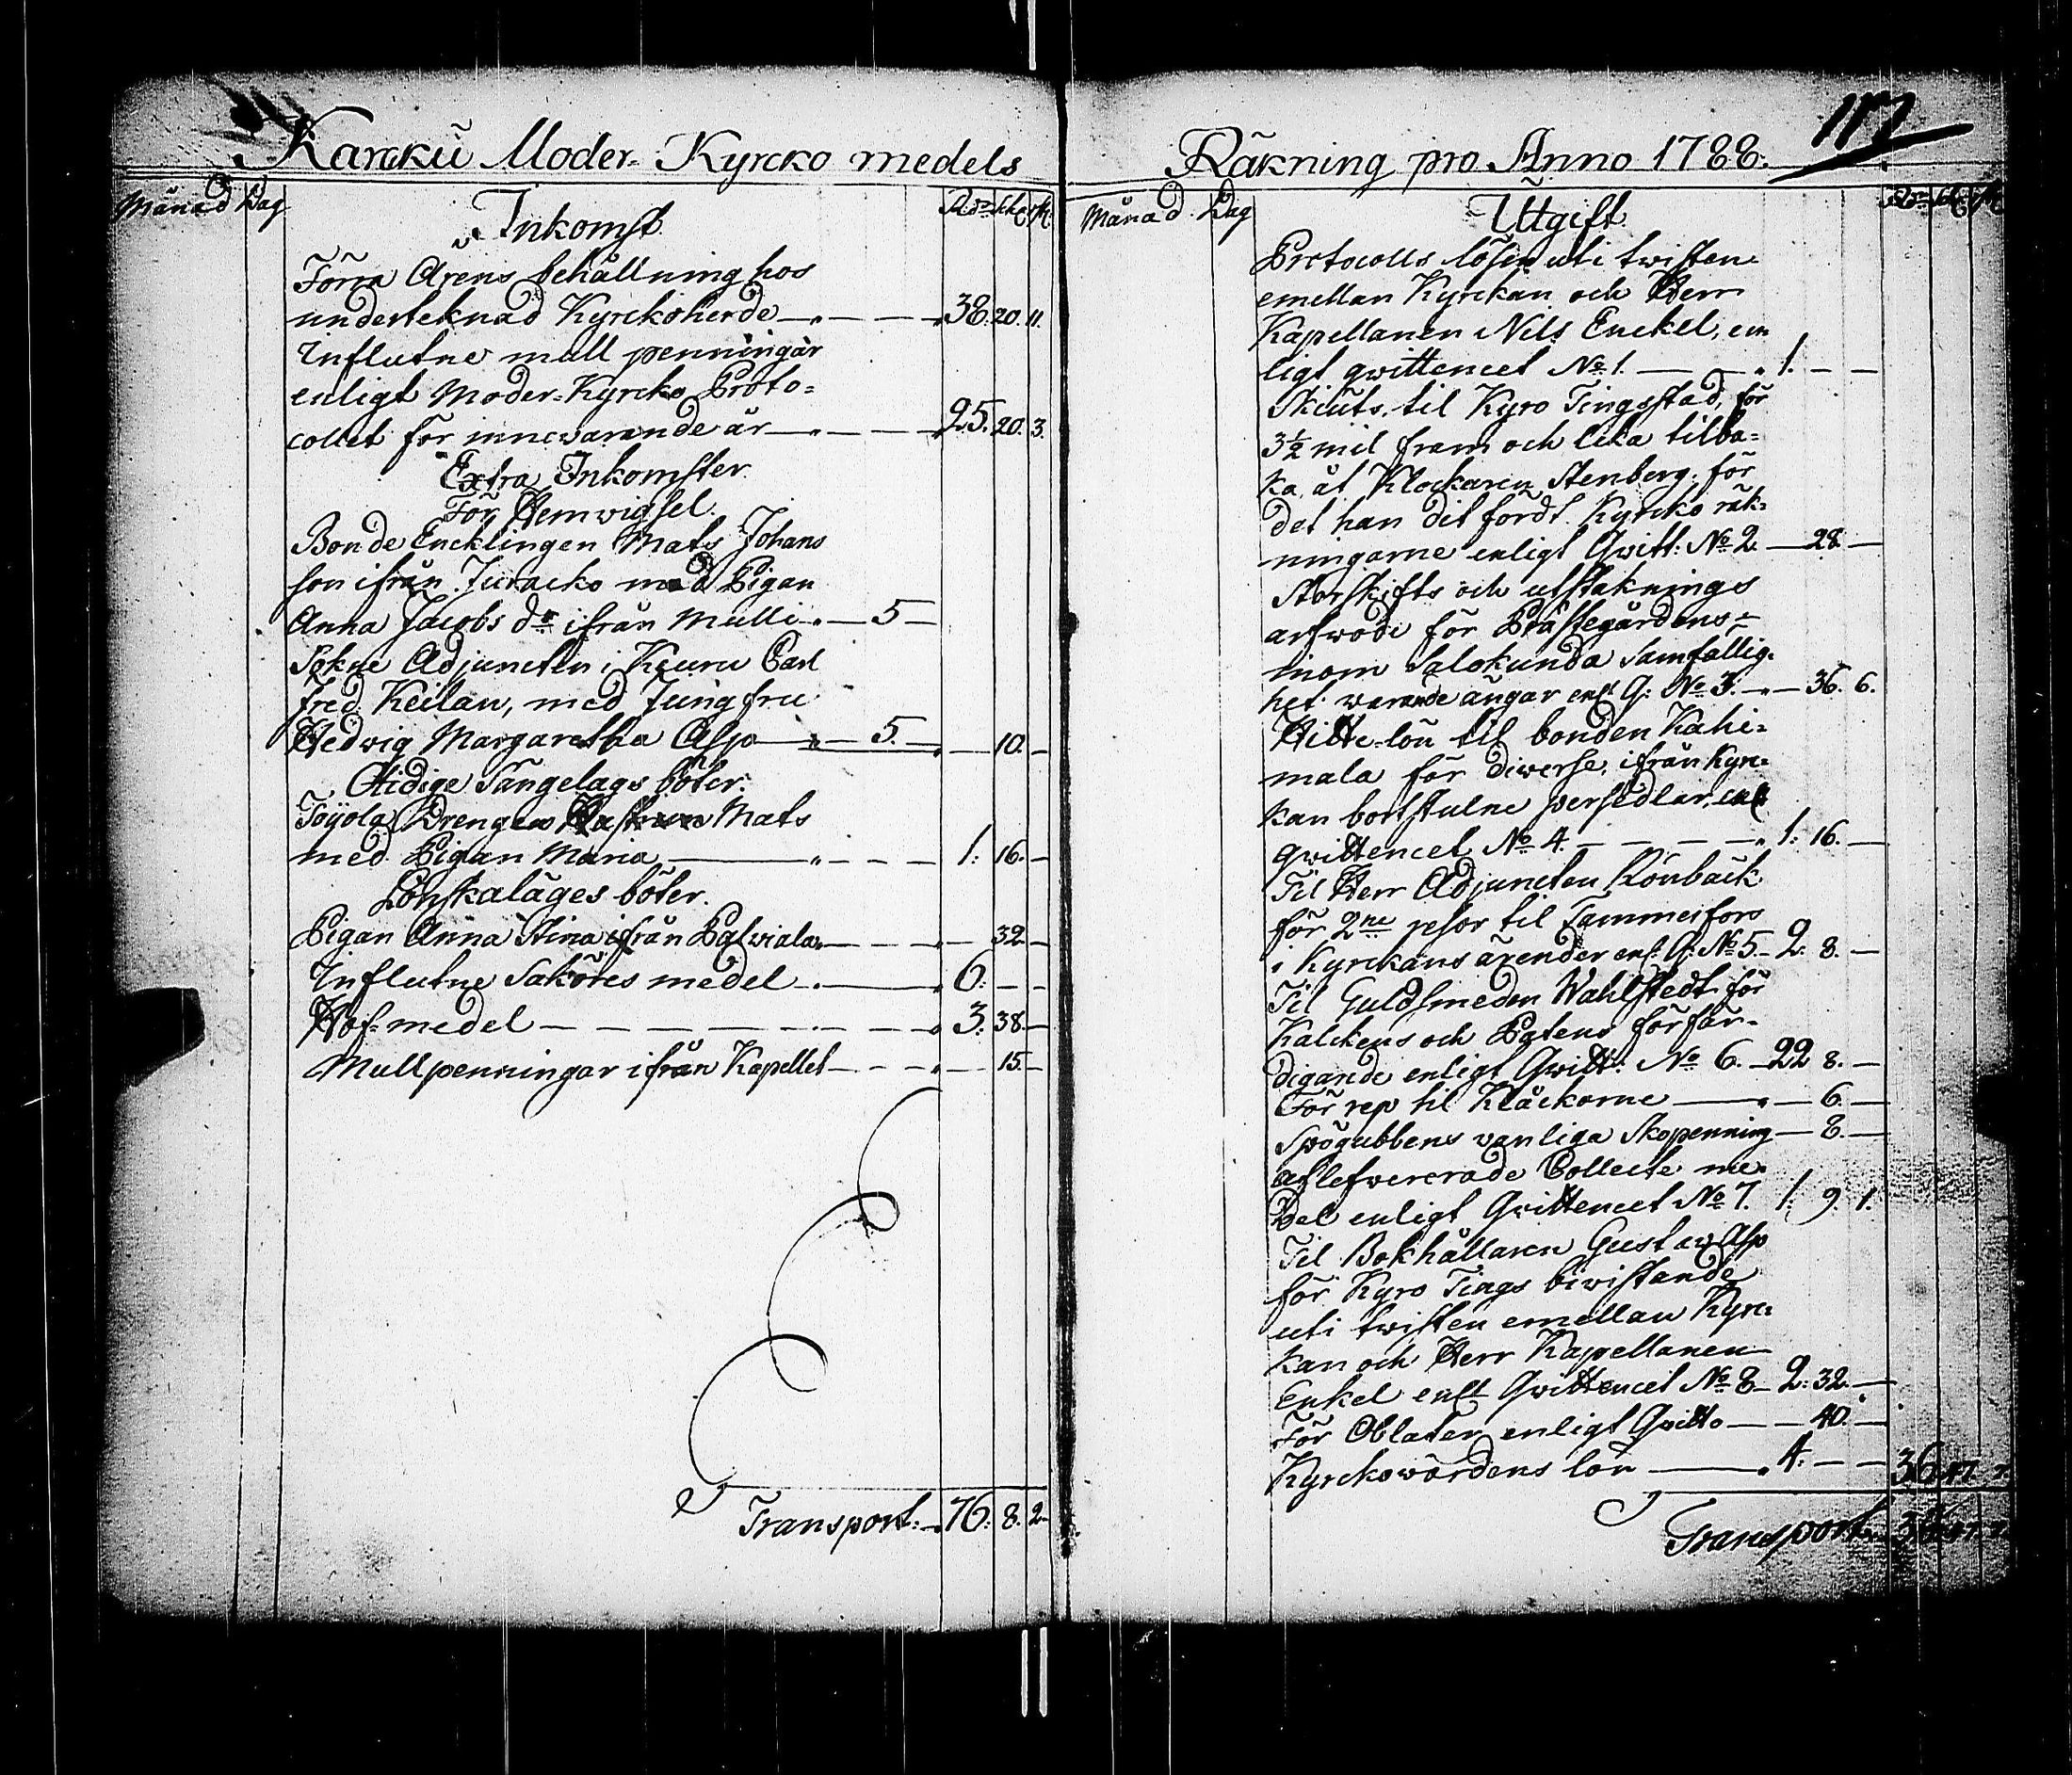 Karcku Moder-Kyrcko medels
Månad Dag
Inkomst
Rdr sk. rst.
Förra Årens behållning hos
underteknad Kyrckoherde — 38. 20. 11.
Influtne mull penningar
enligt Moder-Kyrcko Proto=
collet för innevarande år — 25. 20. 3.
Extra Inkomster
För Hemwigsel.
Bonde Encklingen Mats Johans
son ifrån Juracko med Pigan
Anna Jacobs dr ifrån Mulli — 5 —
Sokne Adjuncten i Keuru Carl
fred. Keilan, med Jungfru
Hedwig Margaretha Asp — 5. — 10. —
Otidige Sängelags böter.
Toyola Drengen Mats
med Pigan Maria — 1: 16. —
Lönskaläges böter.
Pigan Anna Stina ifrån Palviala — 32 —
Influtne Saköres medel — 6: — —
Hof-medel — 3. 38. —
Mullpenningar ifrån Kapellet — 15. —
Transport: 76: 8. 2
Räkning pro Anno 1788.
117
Månad Dag
Utgift
Protocolls lösen uti twisten
emellan Kyrckan och Herr
Kapellanen Nils Enckel, en
ligt qvittencet No 1. — 1. — —
Skiuts til Kyro Tingsstad, för
3½ mil fram och lika tilba=
ka, åt Klockaren Stenberg, för
det han dit fördt Kyrcko räk=
ningarne enligt Qvitt: No 2 — 28 —
Storskifts och utstaknings
arfwode för Prästegårdens
inom Salokunda Samfällig=
het warande ängar enl. Q: No 3. — 36. 6.
Hitte-lön til bonden Kahi=
mala för diverse, ifrån Kyrc=
kan bortstulne persedlar, enl.
qvittencet No 4. — 1: 16. —
Til Herr Adjuncten Rönbäck
för 2ne resor til Tammerfors
i Kyrckans ärender enl. Q: No 5. — 2. 8. —
Til Guldsmeden Wahlstedt för
Kalckens och Patens förfär=
digande enligt Qvitt: No 6. — 22 8. —
För rep til Klåckorne — 6. —
Spögubbens vanliga Skopenning — 8. —
aflefvererade Collecte me=
del enligt Qvittencet No 7. 1: 9. 1.
Til Bokhållaren Gustaw Asp
för Kyro Tings biwistande
uti twisten emellan Kyrc=
kan och Herr Kapellanen
Enkel enlt Qvittencet No 8 — 2: 32. —
För Oblater enligt Qvitto — 40. —
Kyrckowärdens lön — 4: — — 36. 47. 7.
Transport 36. 47. 7.